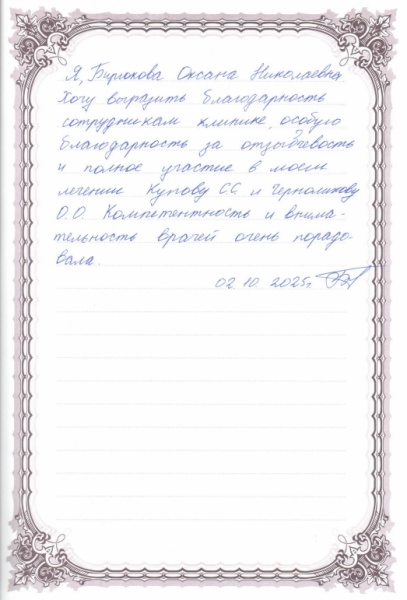 Я, Бирюкова Оксана Николаевна
Хочу выразить благодарность
сотрудникам клинике, особую
благодарность за отзывчевость
и полное участие в моем
лечении Купову СС и
О.О. Компетентность и внима-
тельность врачей очень порадо-
вала.
02.10.2025г